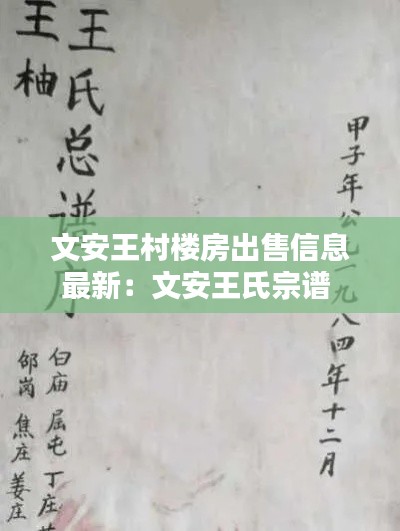 甲子年公元一九八四年十二月
王氏总谱序
王柚
文安王村楼房出售信息
最新：文安王氏宗谱
白庙 屈屯 丁庄
邰岗 焦庄 姜庄